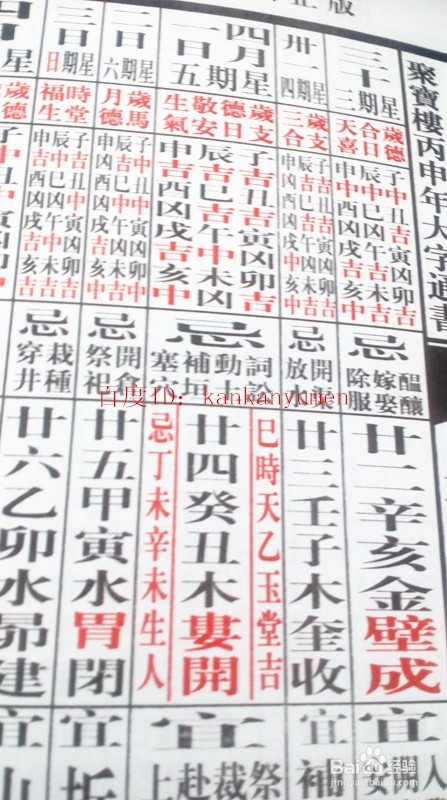 正版
聚寶樓丙申年大字通書
三十 星期三
歲德合日天喜
忌 醞釀嫁娶除服
廿二辛亥金壁成
宜
卅一 星期四
歲支三合
忌 開渠放水
廿三壬子木奎收
宜補
四月一日 星期五
歲支德日敬安生氣
子吉丑吉寅凶卯吉
辰吉巳吉午中未凶
申吉酉凶戌吉亥中
忌 詞訟動土補垣塞穴
巳時天乙玉堂吉
廿四癸丑木婁開
忌丁未辛未生人
宜 祭裁赴上
二日 星期六
歲馬月德
忌 開倉祭祖
廿五甲寅水胃閉
宜
三日 星期日
時堂福生
忌 栽種穿井
廿六乙卯水昴建
宜
四日
歲德
百度ID：kankanyumen
Baidu经验
jingyan.baidu.com